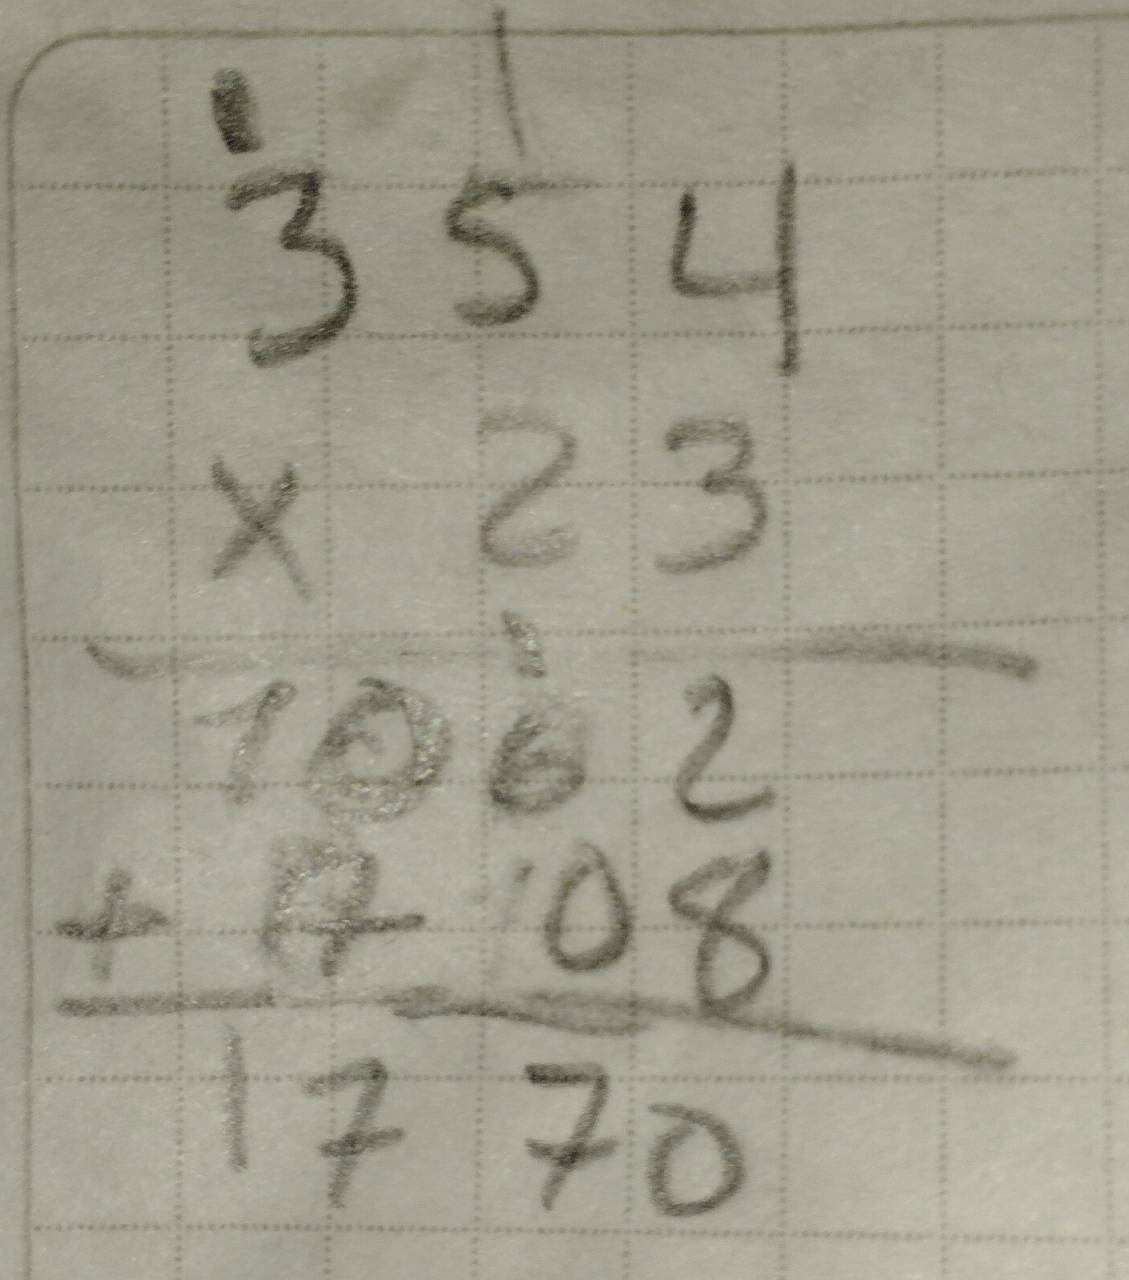 1 1
354
x 23
1
1062
+ 708
1770